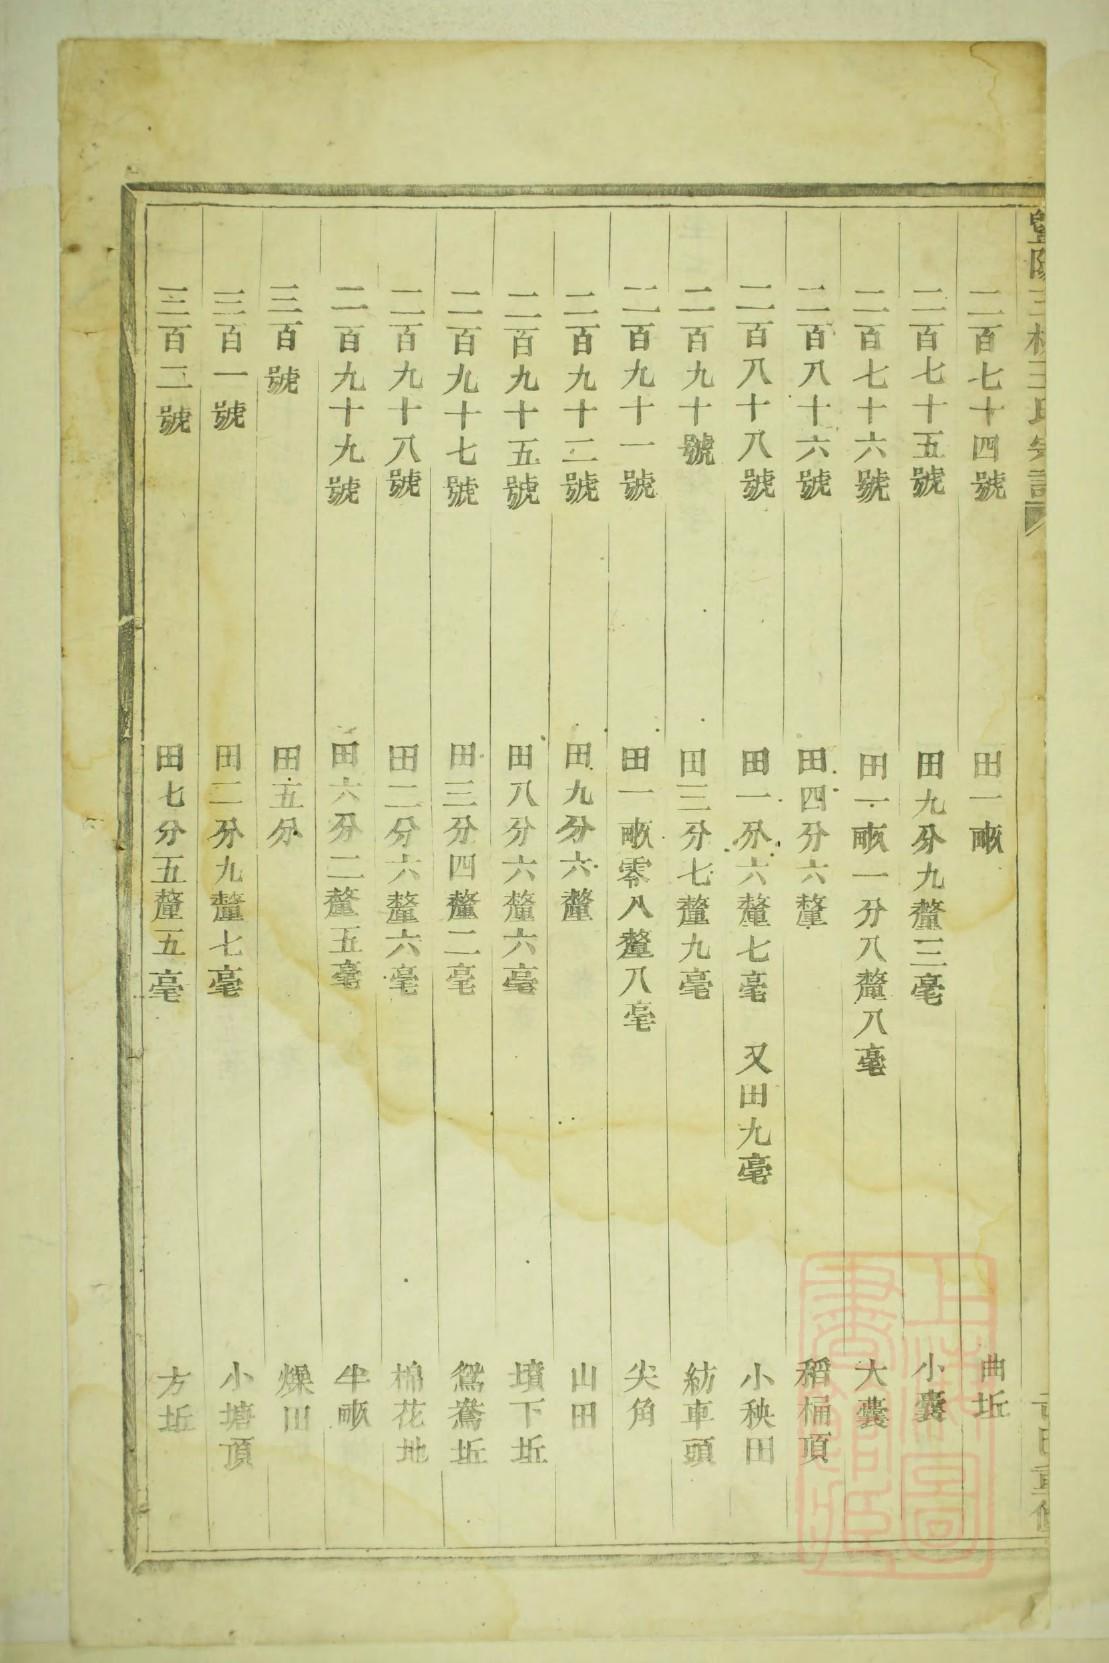 二百七十四號 田一畝 曲坵
二百七十五號 田九分九釐三毫 小囊
二百七十六號 田一畝一分八釐八毫 大囊
二百八十六號 田四分六釐 稻桶頂
二百八十八號 田一分六釐七毫 又田九毫 小秧田
二百九十號 田三分七釐九毫 紡車頭
二百九十一號 田一畝零八釐八毫 尖角
二百九十二號 田九分六釐 山田
二百九十五號 田八分六釐六毫 墳下坵
二百九十七號 田三分四釐二毫 鴛鴦坵
二百九十八號 田二分六釐六毫 棉花地
二百九十九號 田六分二釐五毫 半畝
三百號 田五分 燥田
三百一號 田二分九釐七毫 小塘頂
三百二號 田七分五釐五毫 方坵